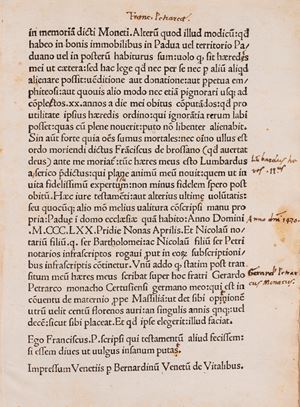 Franc. Petrarca.
in memoriā dicti Moneti. Alterū quod illud modicū: qđ
habeo in bonis immobilibus in Padua uel territorio Pa
duano uel in posterū habiturus sum: uolo q̄ si hæredes
mei ut cætera: sed hac lege qđ nec per se nec p aliū aliqđ
alienare possit: uēditione aut donatione: aut ppetua em
phiteosi: aut quouis alio modo nec etiā pignorari usq; ad
cōpletos .xx. annos a die mei obitus cōputādos: qđ pro
utilitate ipsius hæredis ordino: qui ignorātia rerum labi
posset: quas cū plene nouerit: puto nō libenter alienabit.
Sin aūt forte quia oēs sumus mortales: nec oīno ullus est
ordo moriendi dictus Frāciscus de brossano (qđ auertat
deus) ante me moriat͛: tūc hæres meus esto Lumbardus
a serico p̄dictus: qui plane animū meū nouit: quem ut in
uita fidelissimū expertum: non minus fidelem spero post
obitū. Hæc iure testamēti: aut alterius ultime uolūtatis:
seu quocūq; alio mō melius ualitura cōscripsi manu pro
pria: Paduę ī domo ecclæsię quā habito: Anno Domini
.M.CCC.LXX. Pridie Nonas Aprilis. Et Nicolaū no
tariū filiū.q. ser Bartholomei: ac Nicolaū filiū ser Petri
notarios infrascriptos rogaui .put in eorū subscriptioni
bus infrascriptis cōtinetur. Vnū addo q. statim post tran
situm meū hæres meus scribat super hoc fratri Gerardo
Petrarco monacho Certusiensi germano meo: qui est in
cōuentu de maternio ppe Massiliā: ut det sibi opinionē
utrū uelit centū florenos auri: an singulis annis qnq;: uel
decē: sicut sibi placeat. Et qđ ipse elegerit: illud faciat.
Ego Franciscus.P.scripsi qui testamentū aliud fecissem:
si essem diues ut uulgus insanum putat.
Impressum Venetiis p Bernardinū Venetū de Vitalibus.
Anno dm̄ 1470.
Gerardꝰ Petrar
cus Monacus.